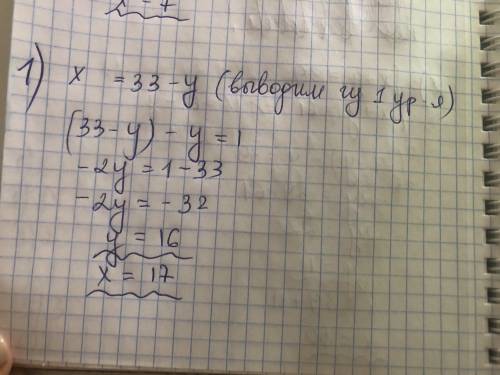 x = 7
1) x = 33 - y (выводим из 1 ур-я)
(33 - y) - y = 1
-2y = 1 - 33
-2y = -32
y = 16
x = 17